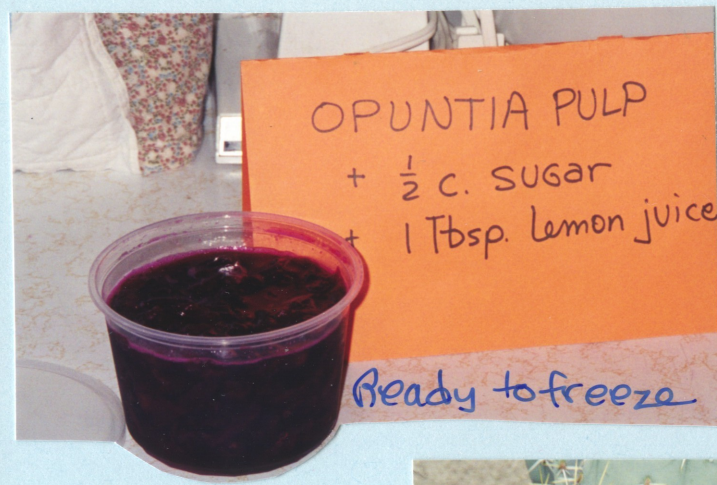 OPUNTIA PULP
+ ½ C. SUGAR
+ 1 Tbsp. Lemon juice
Ready to freeze